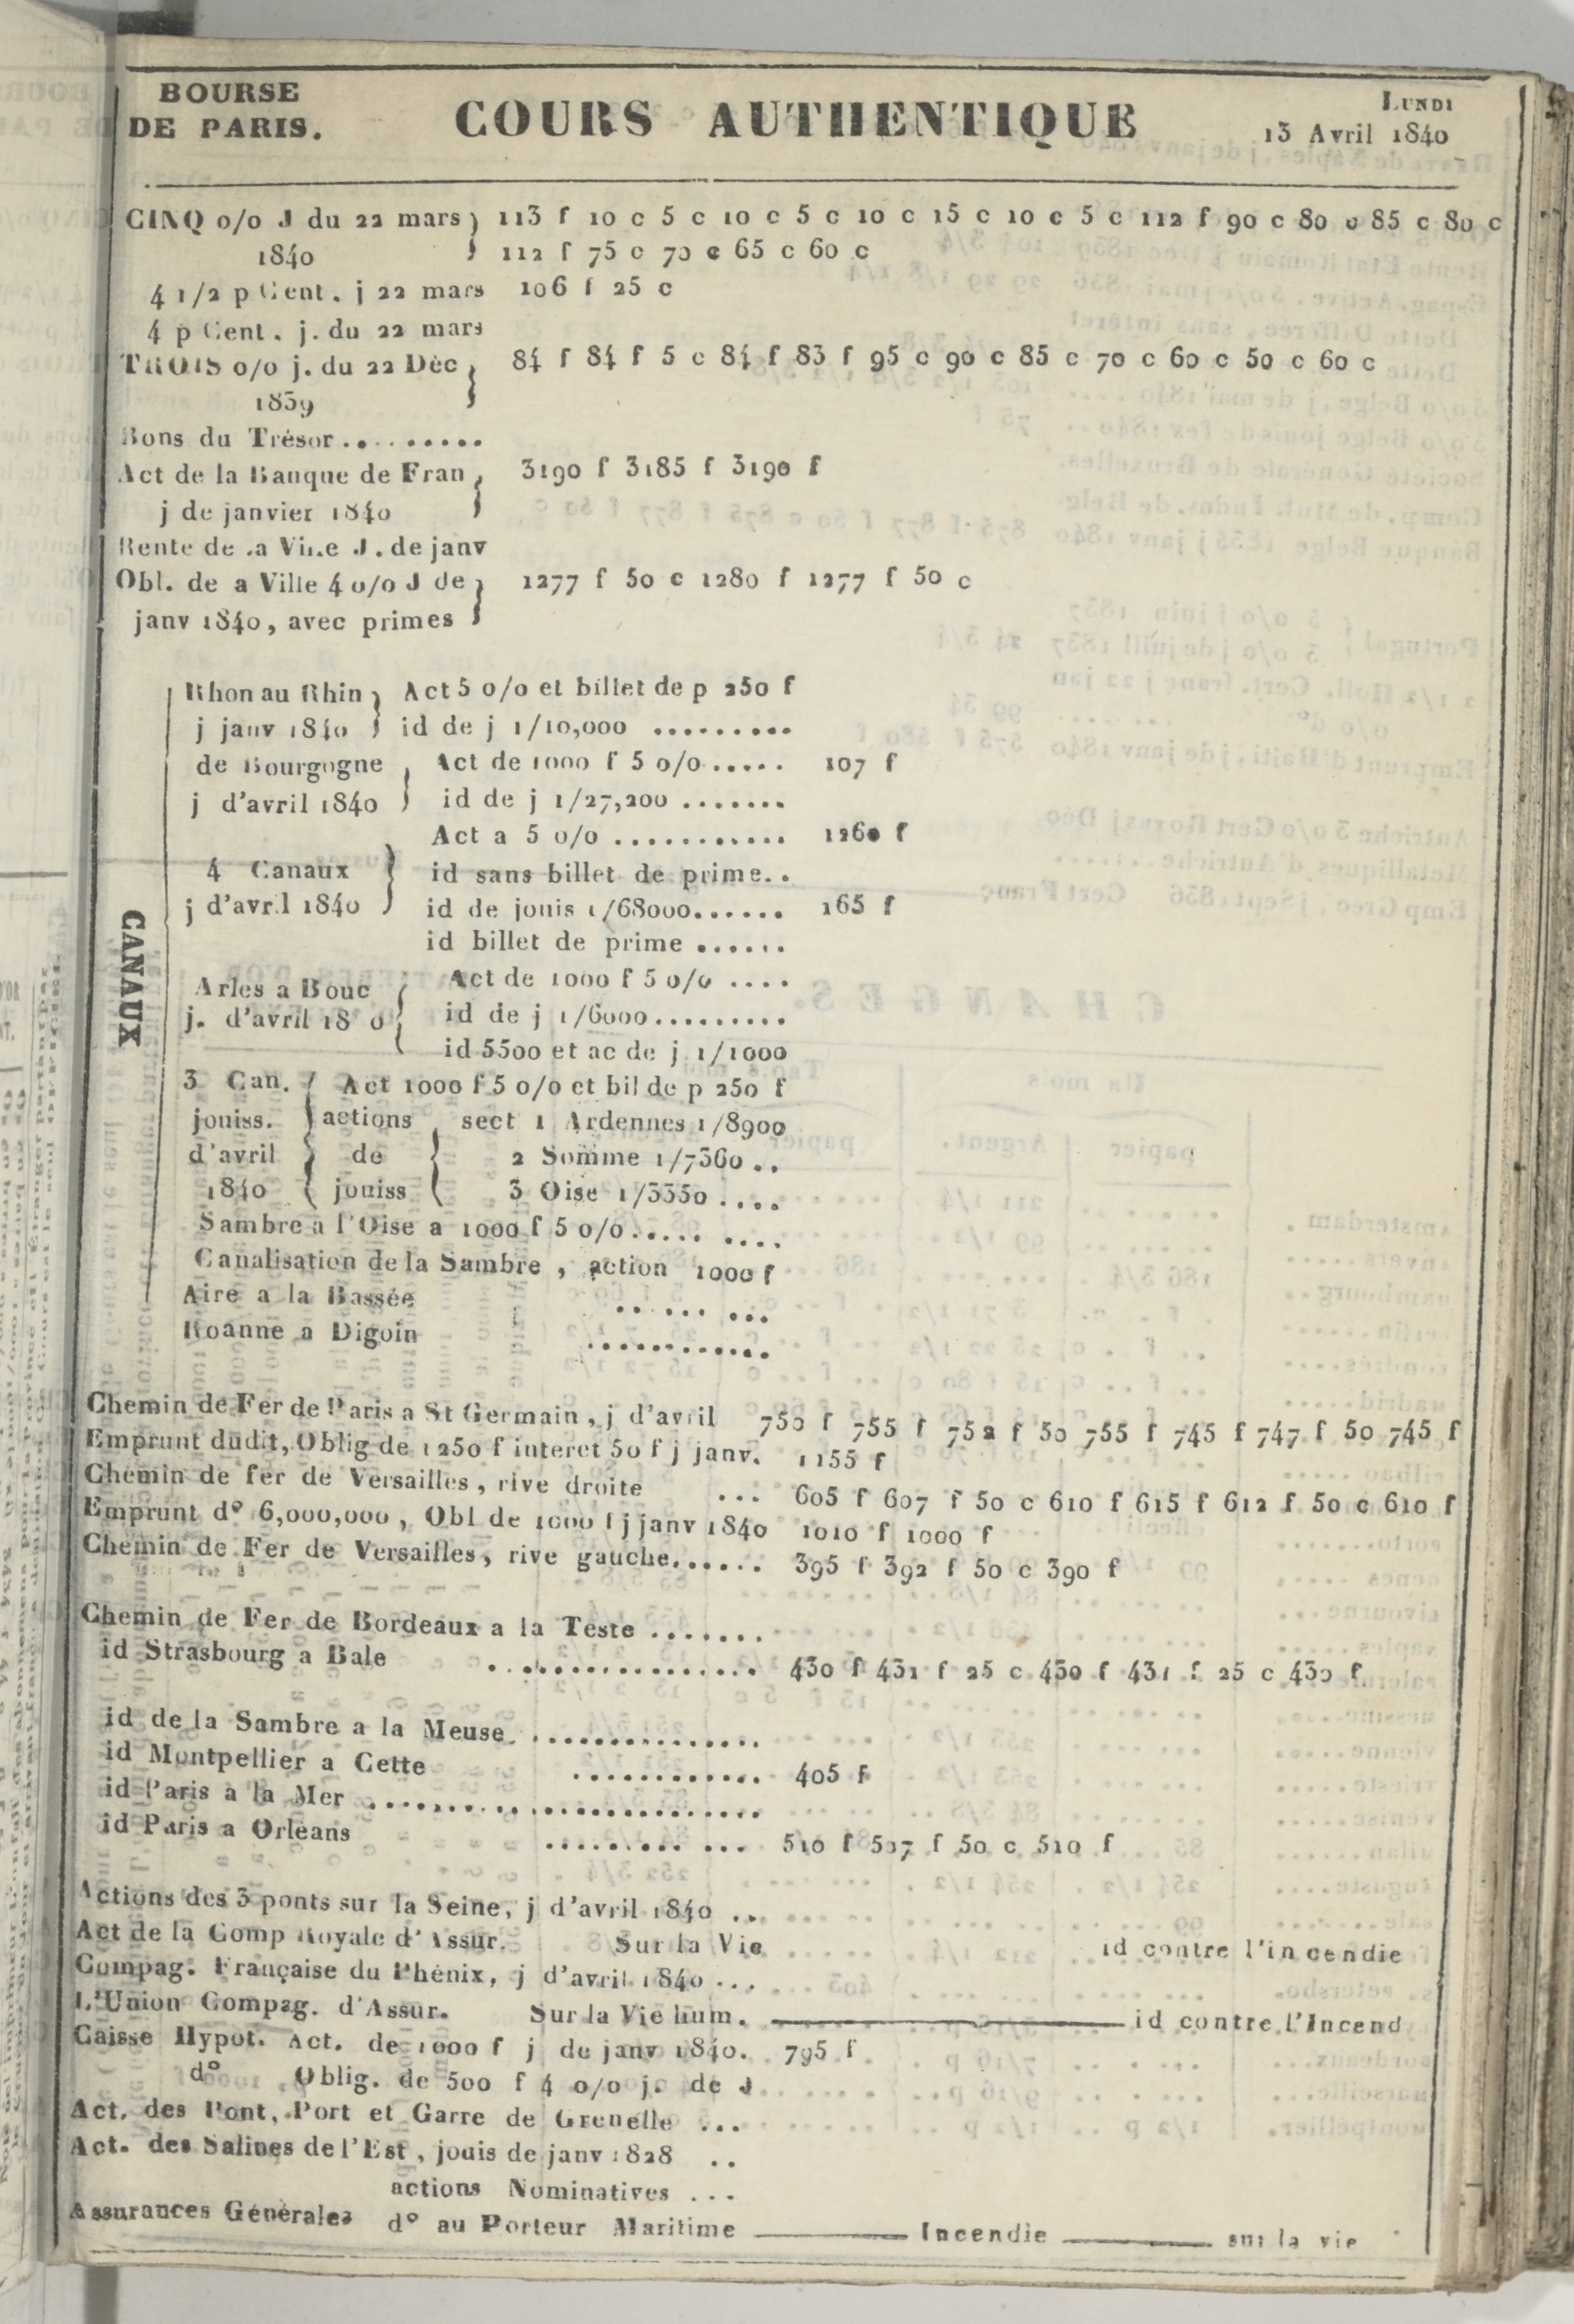 BOURSE
DE PARIS.
COURS AUTHENTIQUE
LUNDI
13 Avril 1840
CINQ o/o J du 22 mars 1840 113 f 10 c 5 c 10 c 5 c 10 c 15 c 10 c 5 c 112 f 90 c 80 c 85 c 80 c
112 f 75 c 70 c 65 c 60 c
4 1/2 p Cent. j 22 mars 106 f 25 c
4 p Cent. j. du 22 mars
TROIS o/o j. du 22 Déc 1839 84 f 84 f 5 c 84 f 83 f 95 c 90 c 85 c 70 c 60 c 50 c 60 c
Bons du Trésor..........
Act de la Banque de Fran 3190 f 3185 f 3190 f
j de janvier 1840
Rente de la Ville J. de janv
Obl. de a Ville 4 o/o J de 1277 f 50 c 1280 f 1277 f 50 c
janv 1840, avec primes
CANAUX
Rhon au Rhin Act 5 o/o et billet de p 250 f
j janv 1840 id de j 1/10,000 .........
de Bourgogne Act de 1000 f 5 o/o..... 107 f
j d'avril 1840 id de j 1/27,200 .......
Act a 5 o/o ........... 1260 f
4 Canaux id sans billet de prime..
j d'avril 1840 id de jouis 1/68000...... 165 f
id billet de prime ......
Arles a Bouc Act de 1000 f 5 o/o ....
j. d'avril 18 0 id de j 1/6000.........
id 5500 et ac de j 1/1000
3 Can. Act 1000 f 5 o/o et bil de p 250 f
jouiss. actions sect 1 Ardennes 1/8900
d'avril de 2 Somme 1/7360..
1840 jouiss 3 Oise 1/3350....
Sambre a l'Oise a 1000 f 5 o/o..... ....
Canalisation de la Sambre, action 1000 f
Aire a la Bassée ...... ...
Roanne a Digoin ............
Chemin de Fer de Paris a St Germain, j d'avril 750 f 755 f 752 f 50 755 f 745 f 747 f 50 745 f
Emprunt dudit, Oblig de 1250 f interet 50 f j janv. 1155 f
Chemin de fer de Versailles, rive droite ... 605 f 607 f 50 c 610 f 615 f 612 f 50 c 610 f
Emprunt d° 6,000,000, Obl de 1000 f j janv 1840 1010 f 1000 f
Chemin de Fer de Versailles, rive gauche...... 395 f 392 f 50 c 390 f
Chemin de Fer de Bordeaux a la Teste .......
id Strasbourg a Bale ................ 430 f 431 f 25 c 430 f 431 f 25 c 430 f
id de la Sambre a la Meuse ...............
id Montpellier a Cette ............ 405 f
id Paris a la Mer ..........................
id Paris a Orleans ......... ... 510 f 507 f 50 c 510 f
Actions des 3 ponts sur la Seine, j d'avril 1840 ...
Act de la Comp Royale d'Assur. Sur la Vie id contre l'incendie
Compag. Française du Phénix, j d'avril 1840 ...
L'Union Compag. d'Assur. Sur la Vie hum. id contre l'Incend
Caisse Hypot. Act. de 1000 f j de janv 1840. 795 f
d° Oblig. de 500 f 4 o/o j. de J
Act. des Pont, Port et Garre de Grenelle ...
Act. des Salines de l'Est, jouis de janv 1828 ..
actions Nominatives ...
Assurances Générales d° au Porteur Maritime Incendie sur la vie